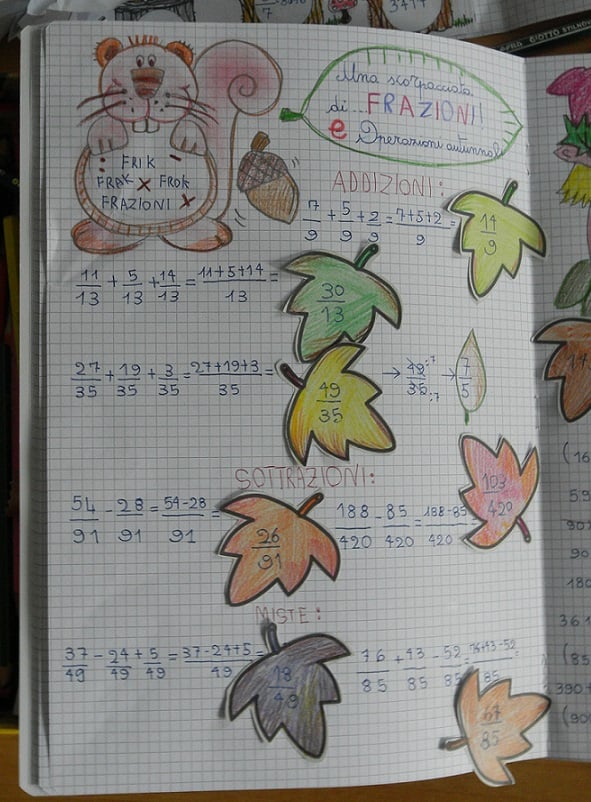 3717
GIOTTO STILNOVO
Una scorpacciata
di... FRAZIONI
e Operazioni autunnali
FRIK
FRAK x FROK
FRAZIONI x
ADDIZIONI:
7/9 + 5/9 + 2/9 = 7+5+2/9 = 14/9
11/13 + 5/13 + 14/13 = 11+5+14/13 = 30/13
27/35 + 19/35 + 3/35 = 27+19+3/35 = 49/35 → 49:7/35:7 → 7/5
SOTTRAZIONI:
54/91 - 28/91 = 54-28/91 = 26/91
188/420 - 85/420 = 188-85/420 = 103/420
MISTE:
37/49 - 24/49 + 5/49 = 37-24+5/49 = 18/49
76/85 + 43/85 - 52/85 = 76+43-52/85 = 67/85
(16
59
90
180
361
(85
390+
(90